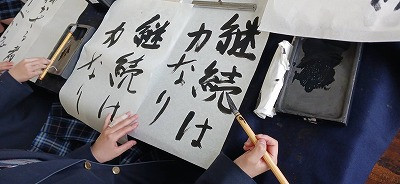 継続は
力なり
継続は
力なり